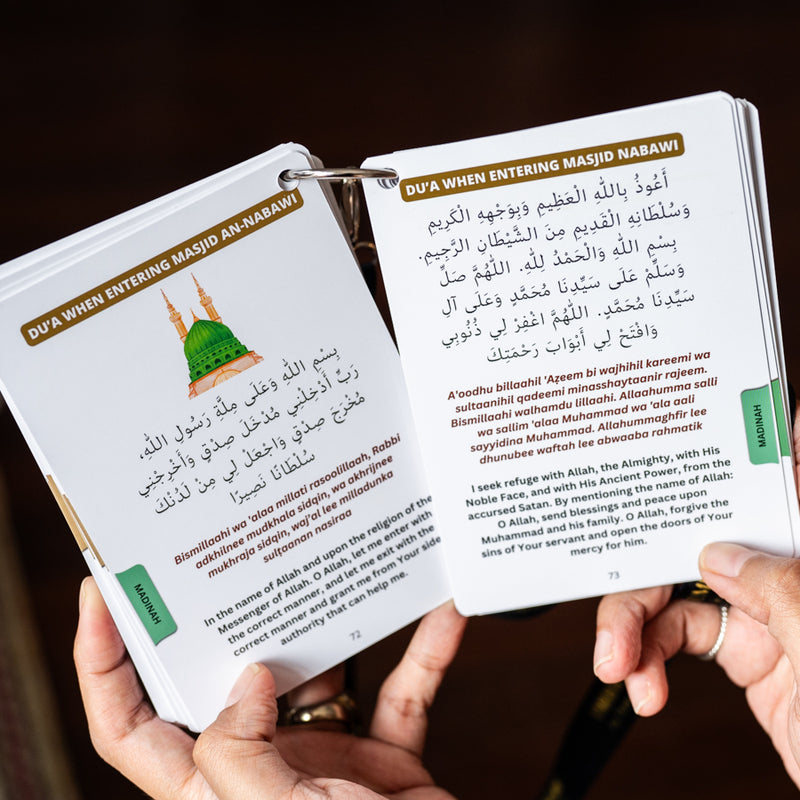 DU'A WHEN ENTERING MASJID AN-NABAWI
بِسْمِ اللهِ وَعَلَى مِلَّةِ رَسُولِ اللهِ،
رَبِّ أَدْخِلْنِي مُدْخَلَ صِدْقٍ وَأَخْرِجْنِي
مُخْرَجَ صِدْقٍ وَاجْعَلْ لِي مِنْ لَدُنْكَ
سُلْطَانًا نَصِيرًا
Bismillaahi wa 'alaa millati rasoolillaah, Rabbi
adkhilnee mudkhala sidqin, wa akhrijnee
mukhraja sidqin, waj'al lee milladunka
sultaanan nasiraa
In the name of Allah and upon the religion of the
Messenger of Allah. O Allah, let me enter with
the correct manner, and let me exit with the
correct manner and grant me from Your side
authority that can help me.
MADINAH
72
DU'A WHEN ENTERING MASJID NABAWI
أَعُوذُ بِاللهِ الْعَظِيمِ وَبِوَجْهِهِ الْكَرِيمِ
وَسُلْطَانِهِ الْقَدِيمِ مِنَ الشَّيْطَانِ الرَّجِيمِ.
بِسْمِ اللهِ وَالْحَمْدُ لِلَّهِ. اللَّهُمَّ صَلِّ
وَسَلِّمْ عَلَى سَيِّدِنَا مُحَمَّدٍ وَعَلَى آلِ
سَيِّدِنَا مُحَمَّدٍ. اللَّهُمَّ اغْفِرْ لِي ذُنُوبِي
وَافْتَحْ لِي أَبْوَابَ رَحْمَتِكَ
A'oodhu billaahil 'Aẓeem bi wajhihil kareemi wa
sultaanihil qadeemi minasshaytaanir rajeem.
Bismillaahi walhamdu lillaahi. Allaahumma salli
wa sallim 'alaa Muhammad wa 'ala aali
sayyidina Muhammad. Allahummaghfir lee
dhunubee waftah lee abwaaba rahmatik
I seek refuge with Allah, the Almighty, with His
Noble Face, and with His Ancient Power, from the
accursed Satan. By mentioning the name of Allah:
O Allah, send blessings and peace upon
Muhammad and his family. O Allah, forgive the
sins of Your servant and open the doors of Your
mercy for him.
MADINAH
73